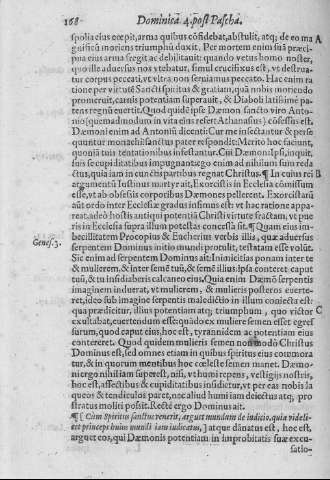 168 Dominica 4. post Pascha.
spolia eius cœpit, arma quibus cõfidebat, abstulit, atq; de eo ma A
gnificũ moriens triumphũ duxit. Per mortem enim suã præci-
pua eius arma fregit ac debilitauit: quando vetus homo noster,
quo ille aduersus nos vtebatur, simul crucifixus est, vt destrua-
tur corpus peccati, vt vltra non seruiamus peccato. Hac enim ra
tione per virtutẽ Sancti spiritus & gratiam, quã nobis moriendo
promeruit, carnis potentiam superauit, & Diaboli latissimè pa-
tens regnũ euertit. Quod quidẽ ipse Dæmon sancto viro Anto-
nio (quemadmodum in vita eius refert Athanasius) cõfessus est.
Dæmoni enim ad Antoniũ dicenti: Cur me insectantur & perse-
quuntur monachi? Sanctus pater respondit: Merito hoc faciunt,
quoniã tuis tentationibus infestantur. Cui Dæmon: Ipsi, inquit,
suis se cupiditatibus impugnant: ego enim ad nihilum sum reda
ctus, quia iam in cunctis partibus regnat Christus. ¶ In cuius rei B
argumentũ Iustinus martyr ait, Exorcistis in Ecclesia cõmissum
esse, vt ab obsessis corporibus Dæmones pellerent. Exorcistarũ
aũt ordo inter Ecclesiæ gradus infimus est: vt hac ratione appa-
reat, adeò hostis antiqui potentiã Christi virtute fractam, vt pue
ris in Ecclesia supra illum potestas concessa sit. ¶ Quam eius im-
becillitatem Procopius & Eucherius verbis illis, quæ aduersus
Genes. 3. serpentem Dominus initio mundi protulit, testatam esse volũt.
Sic enim ad serpentem Dominus ait: Inimicitias ponam inter te
& mulierem, & inter semẽ tuũ, & semẽ illius: ipsa conteret caput
tuũ, & tu insidiaberis calcaneo eius. Quia enim Dæmõ serpentis
imaginem induerat, vt mulierem, & mulieris posteros euerte-
ret, ideo sub imagine serpentis maledictio in illum coniecta est:
qua prædicitur, illius potentiam atq; triumphum, quo victor C
exultabat, euertendum esse: quádoex muliere semen esset egres
surum, quod caput eius, hoc est, tyrannidem ac potentiam eius
contereret. Quod quidem mulieris semen non modò Christus
Dominus est, sed omnes etiam in quibus spiritus eius commora
tur, & in quorum mentibus hoc cœleste semen manet. Dæmo-
ni ergo nihil iam superest, nisi, vt humi repens, vestigijs nostris,
hoc est, affectibus & cupiditatibus insidietur, vt per eas nobis la
queos & tendiculas paret, nec aliud humi iam deiectus atq; pro
stratus moliri possit. Rectè ergo Dominus ait.
¶ [ Cùm Spiritus sanctus venerit, arguet mundum de iudicio, quia videli-
cet princeps huius mundi iam iudicatus, ] atque dãnatus est, hoc est,
arguet eos, qui Dæmonis potentiam in improbitatis suæ excu-
satio-